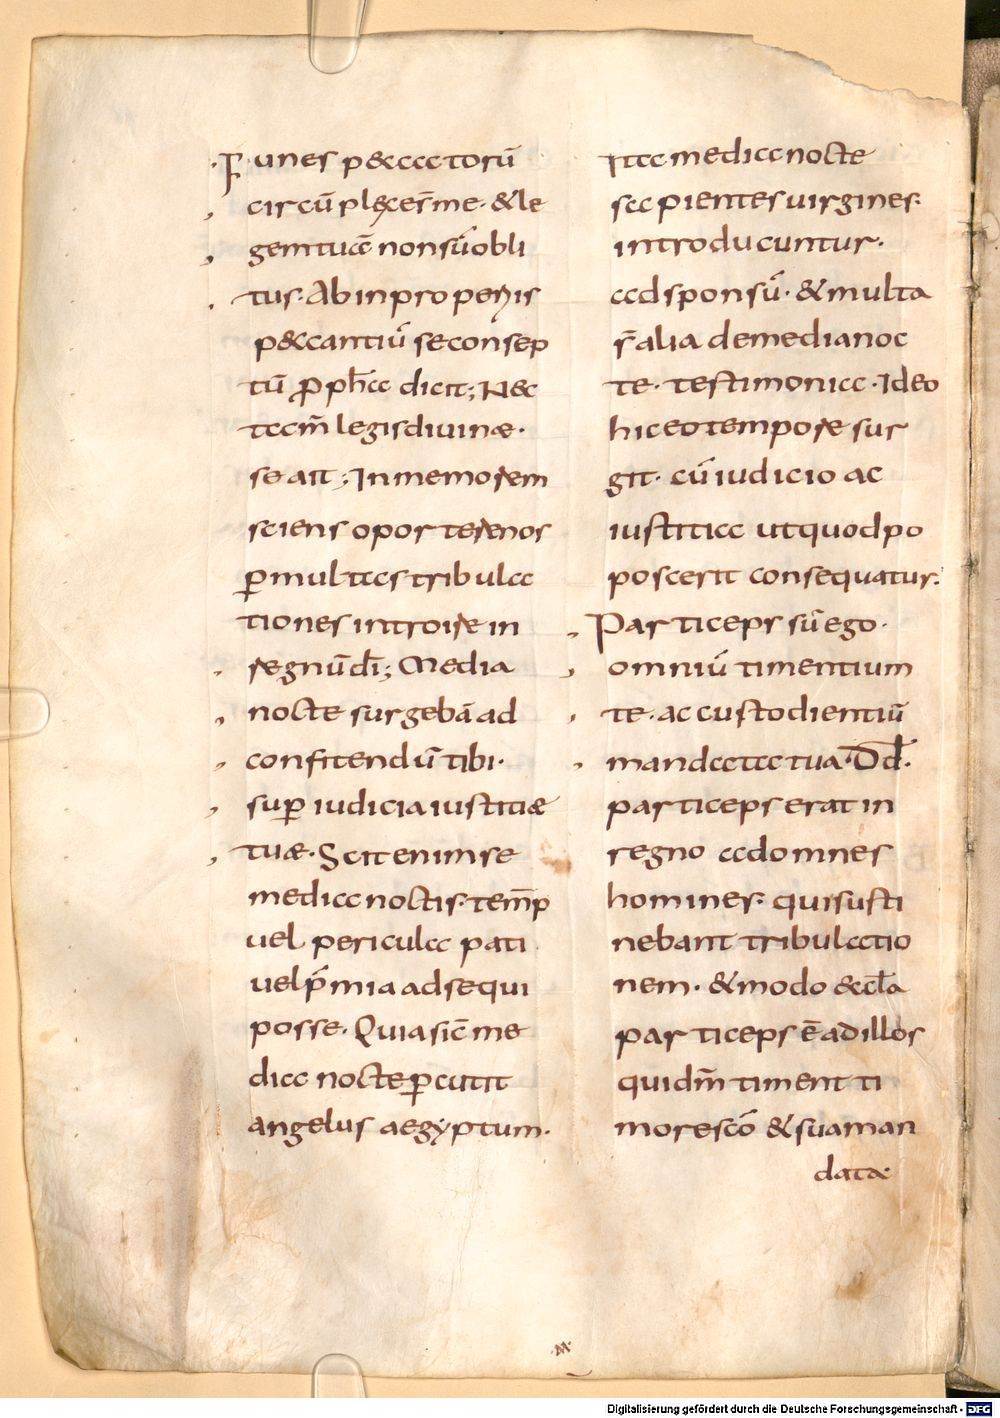 Funes p&catorū
circū plęcesm̄e· &le
gem tuā non sū obli
tus· Ab inproperiis
p&cantiū se consep
tū ꝓph̄a dicit; Nec
tam̄ legis diuinæ·
se ait; In memorem
sciens oportere nos
ꝑ multas tribula
tiones introire in
regnū dī; Media
nocte surgebā ad
confitendū tibi·
suꝑ iudicia iustitiæ
tuæ· Scit enim se
media noctis· temp̄
uel pericula pati
uel p̄mia adsequi
posse· Quia sic̄ me
dia nocte ꝑcutit
angelus aegyptum·
Ita media nocte
sapientes uirgines·
introducuntur·
ad sponsū· & multa
s̄ alia de media noc
te· testimonia· Ideo
hic eo tempore sur
git· cū iudicio ac
iustitia ut quod po
poscerit consequatur·
Particeps sū ego·
omniū timentium
te· ac custodientiū
mandata tua· Dd̄·
particeps erat in
regno ad omnes
homines· qui susti
nebant tribulatio
nem· & modo &cl̄a
particeps ē ad illos
quidm̄ timent ti
more scō & sua man
data·
·M·
Digitalisierung gefördert durch die Deutsche Forschungsgemeinschaft - DFG